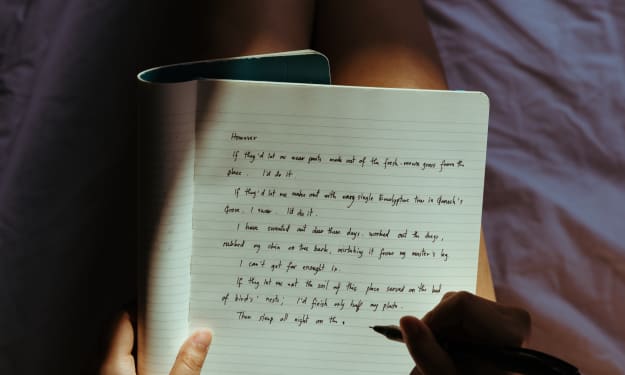 However
If they'd let me wear pants made out of the fresh-mown grass from this
place. I'd do it.
If they'd let me make out with every single Eucalyptus tree in
Grove, I swear. I'd do it.
I have sweated out dew these days, worked out the dregs,
rubbed my chin on tree bark, mistaking it for my master's leg
I can't get far enough in.
If they let me eat the soil of this place served on the bed
of birds' nests; I'd finish only half my plate.
Then sleep all night on the